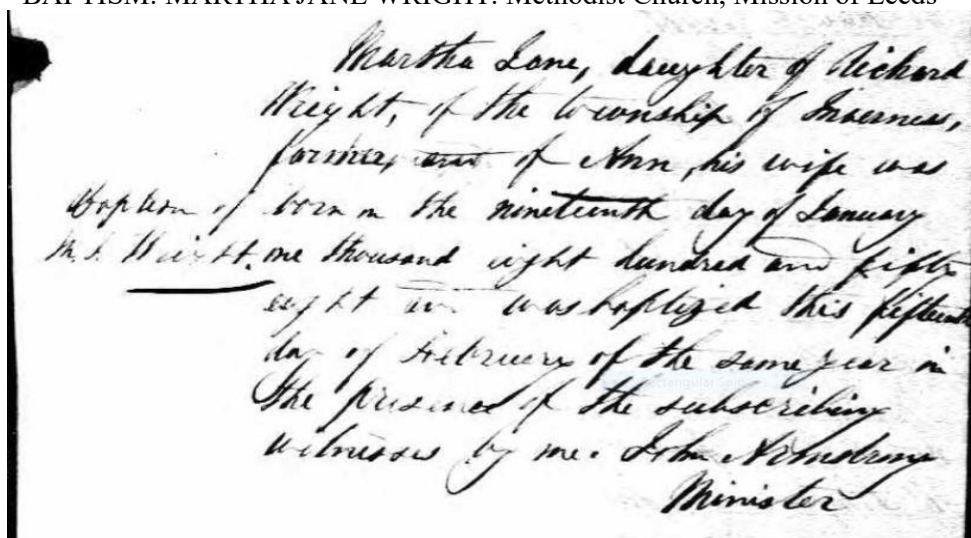 BAPTISM: MARTHA JANE WRIGHT: Methodist Church, Mission of Leeds
Martha Jane, daughter of Richard
Wright, of the township of Inverness,
farmer, and of Ann, his wife was
born on the nineteenth day of January
one thousand eight hundred and fifty
eight and was baptized this fifteenth
day of February of the same year in
the presence of the subscribing
witnesses by me. John Armstrong
Minister
Baptism of
M. J. Wright.